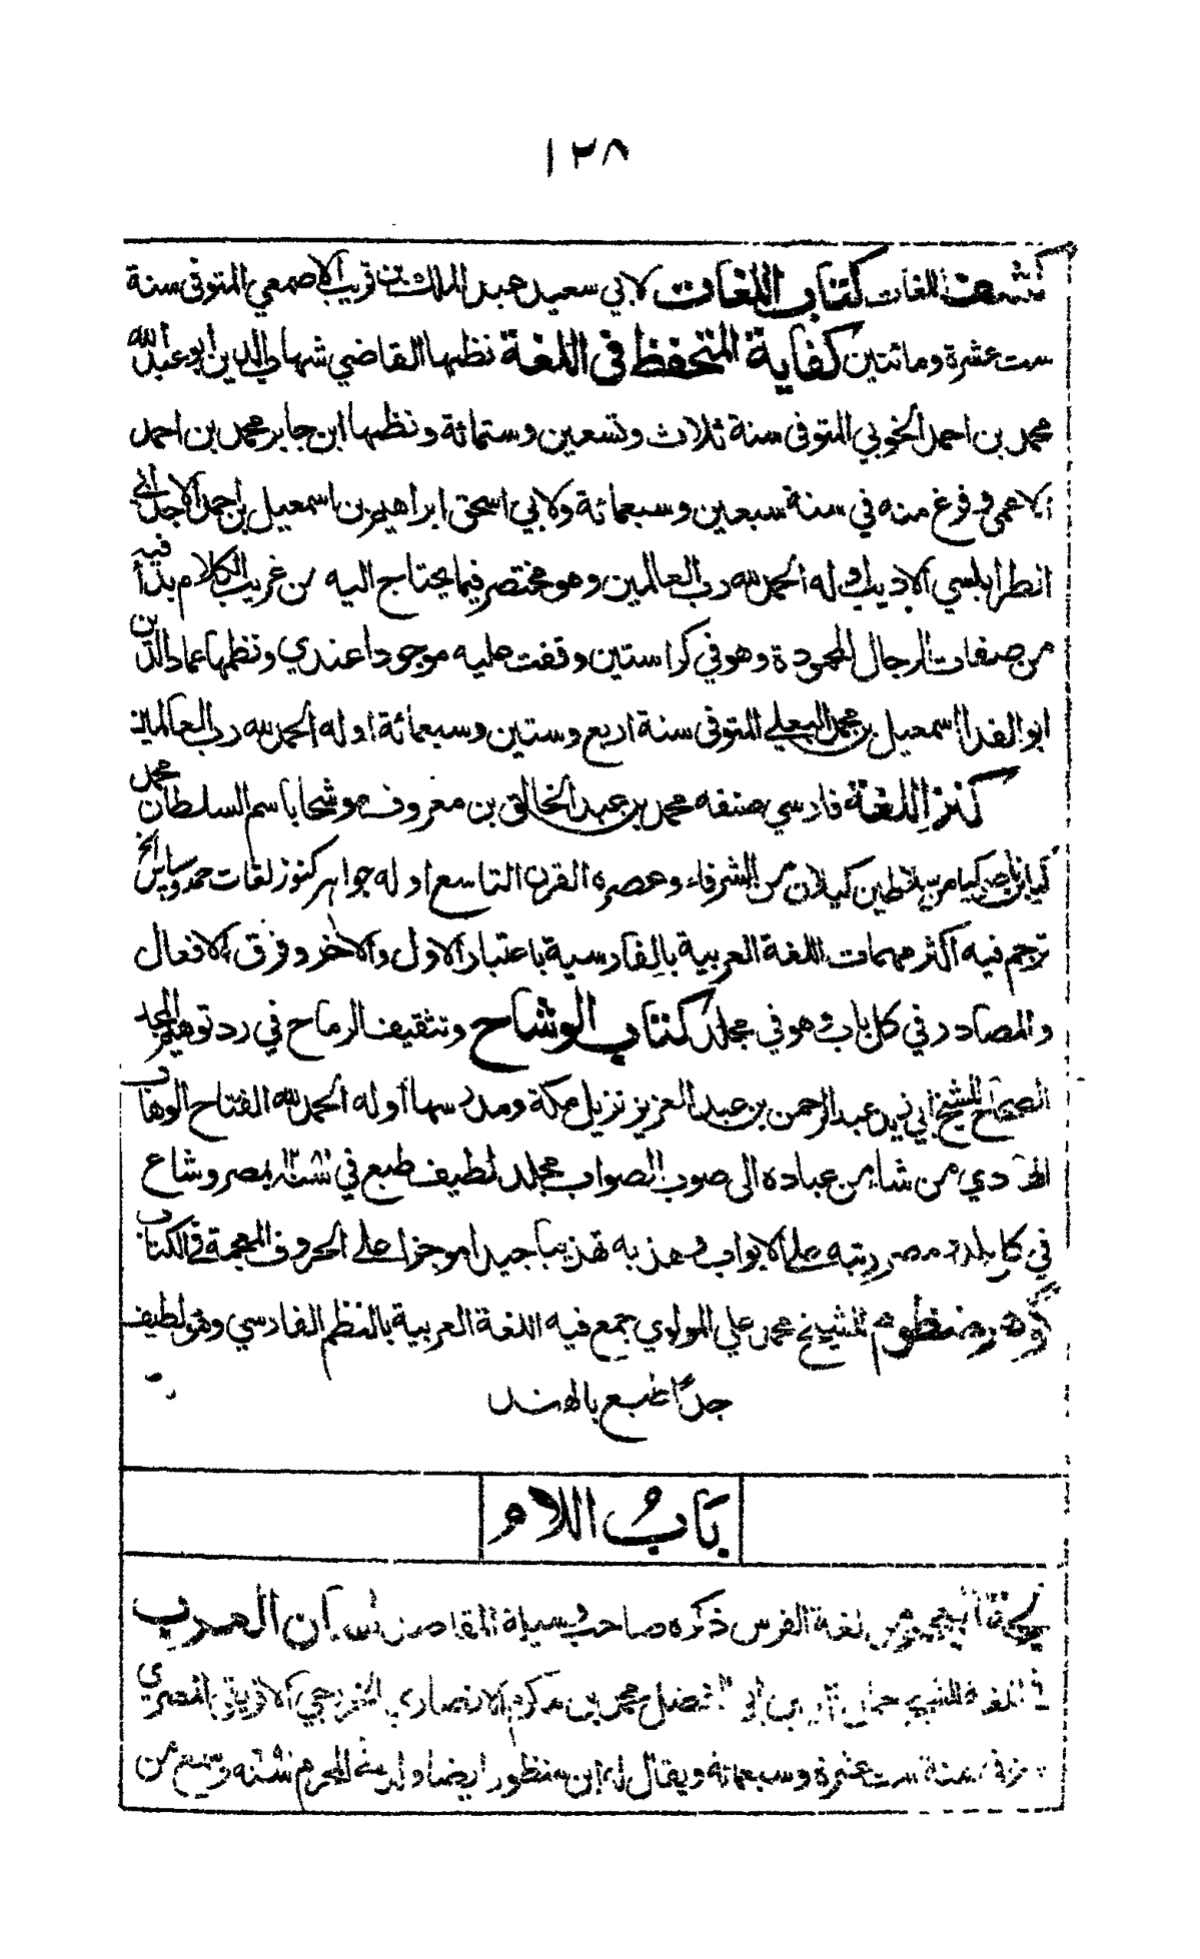 ١٢٨
كشف اللغات كتاب اللغات لابي سعيد عبد الملك بن قريب الاصمعي المتوفى سنة
ست عشرة ومائتين كفاية المتحفظ في اللغة نظمها القاضي شهاب الدين ابو عبد الله
محمد بن احمد الخوبي المتوفى سنة ثلاث وتسعين وستمائة ونظمها ابن جابر محمد بن احمد
الاعمى وفرغ منه في سنة سبعين وسبعمائة ولابي اسحق ابراهيم بن اسمعيل بن احمد الاجدابي
الطرابلسي الاديب اوله الحمد لله رب العالمين وهو مختصر فيما يحتاج اليه من غريب الكلام بدأ فيه
من صفات الرجال المحمودة وهو في كراستين وقفت عليه موجودا عندي ونظمها عماد الدين
ابو الفدا اسمعيل بن محمد البعلي المتوفى سنة اربع وستين وسبعمائة اوله الحمد لله رب العالمين
كنز اللغة فارسي صنفه محمد بن عبد الخالق بن معروف موشحا باسم السلطان محمد
كيا بن ناصر كيا من سلاطين كيلان من الشرفاء وعصره القرن التاسع اوله جواهر كنوز لغات حمد وسپاس الخ
ترجم فيه اكثر مهمات اللغة العربية بالفارسية باعتبار الاول والاخر وفرق الافعال
والمصادر في كل باب وهو في مجلد كتاب الوشاح وتثقيف الرماح في رد توهيم المجد
الصحاح للشيخ ابي زيد عبد الرحمن بن عبد العزيز نزيل مكة ومدرسها أوله الحمد لله الفتاح الوهاب
الهادي من شاء من عباده الى صوب الصواب مجلد لطيف طبع في بمصر وشاع
في كل بلدة مصر رتبه على الابواب وهذبه تهذيبا جيدا موجزا على الحروف المعجمة في الكتاب
گوهر منظوم للشيخ محمد علي المولوي جمع فيه اللغة العربية بالنظم الفارسي وهو لطيف
جدا طبع بالهند
بَابُ اللام
لغة الفرس ذكره صاحب وسيلة المقاصد لسان العرب
في اللغة للشيخ جمال الدين ابي الفضل محمد بن مكرم الانصاري الخزرجي الافريقي المصري
سنة ست عشرة وسبعمائة ويقال له ابن منظور ايضا ولد في المحرم سنة وسمع من